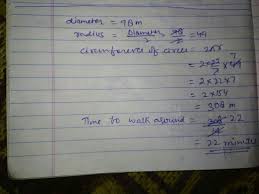 diameter = 98m
radius = Diameter/2 = 98/2 = 49
circumference of circle = 2πr
= 2 × 22/7 × 49 7
= 2 × 22 × 7
= 2 × 154
= 308 m
Time to walk around = 308/14 = 22
= 22 minutes